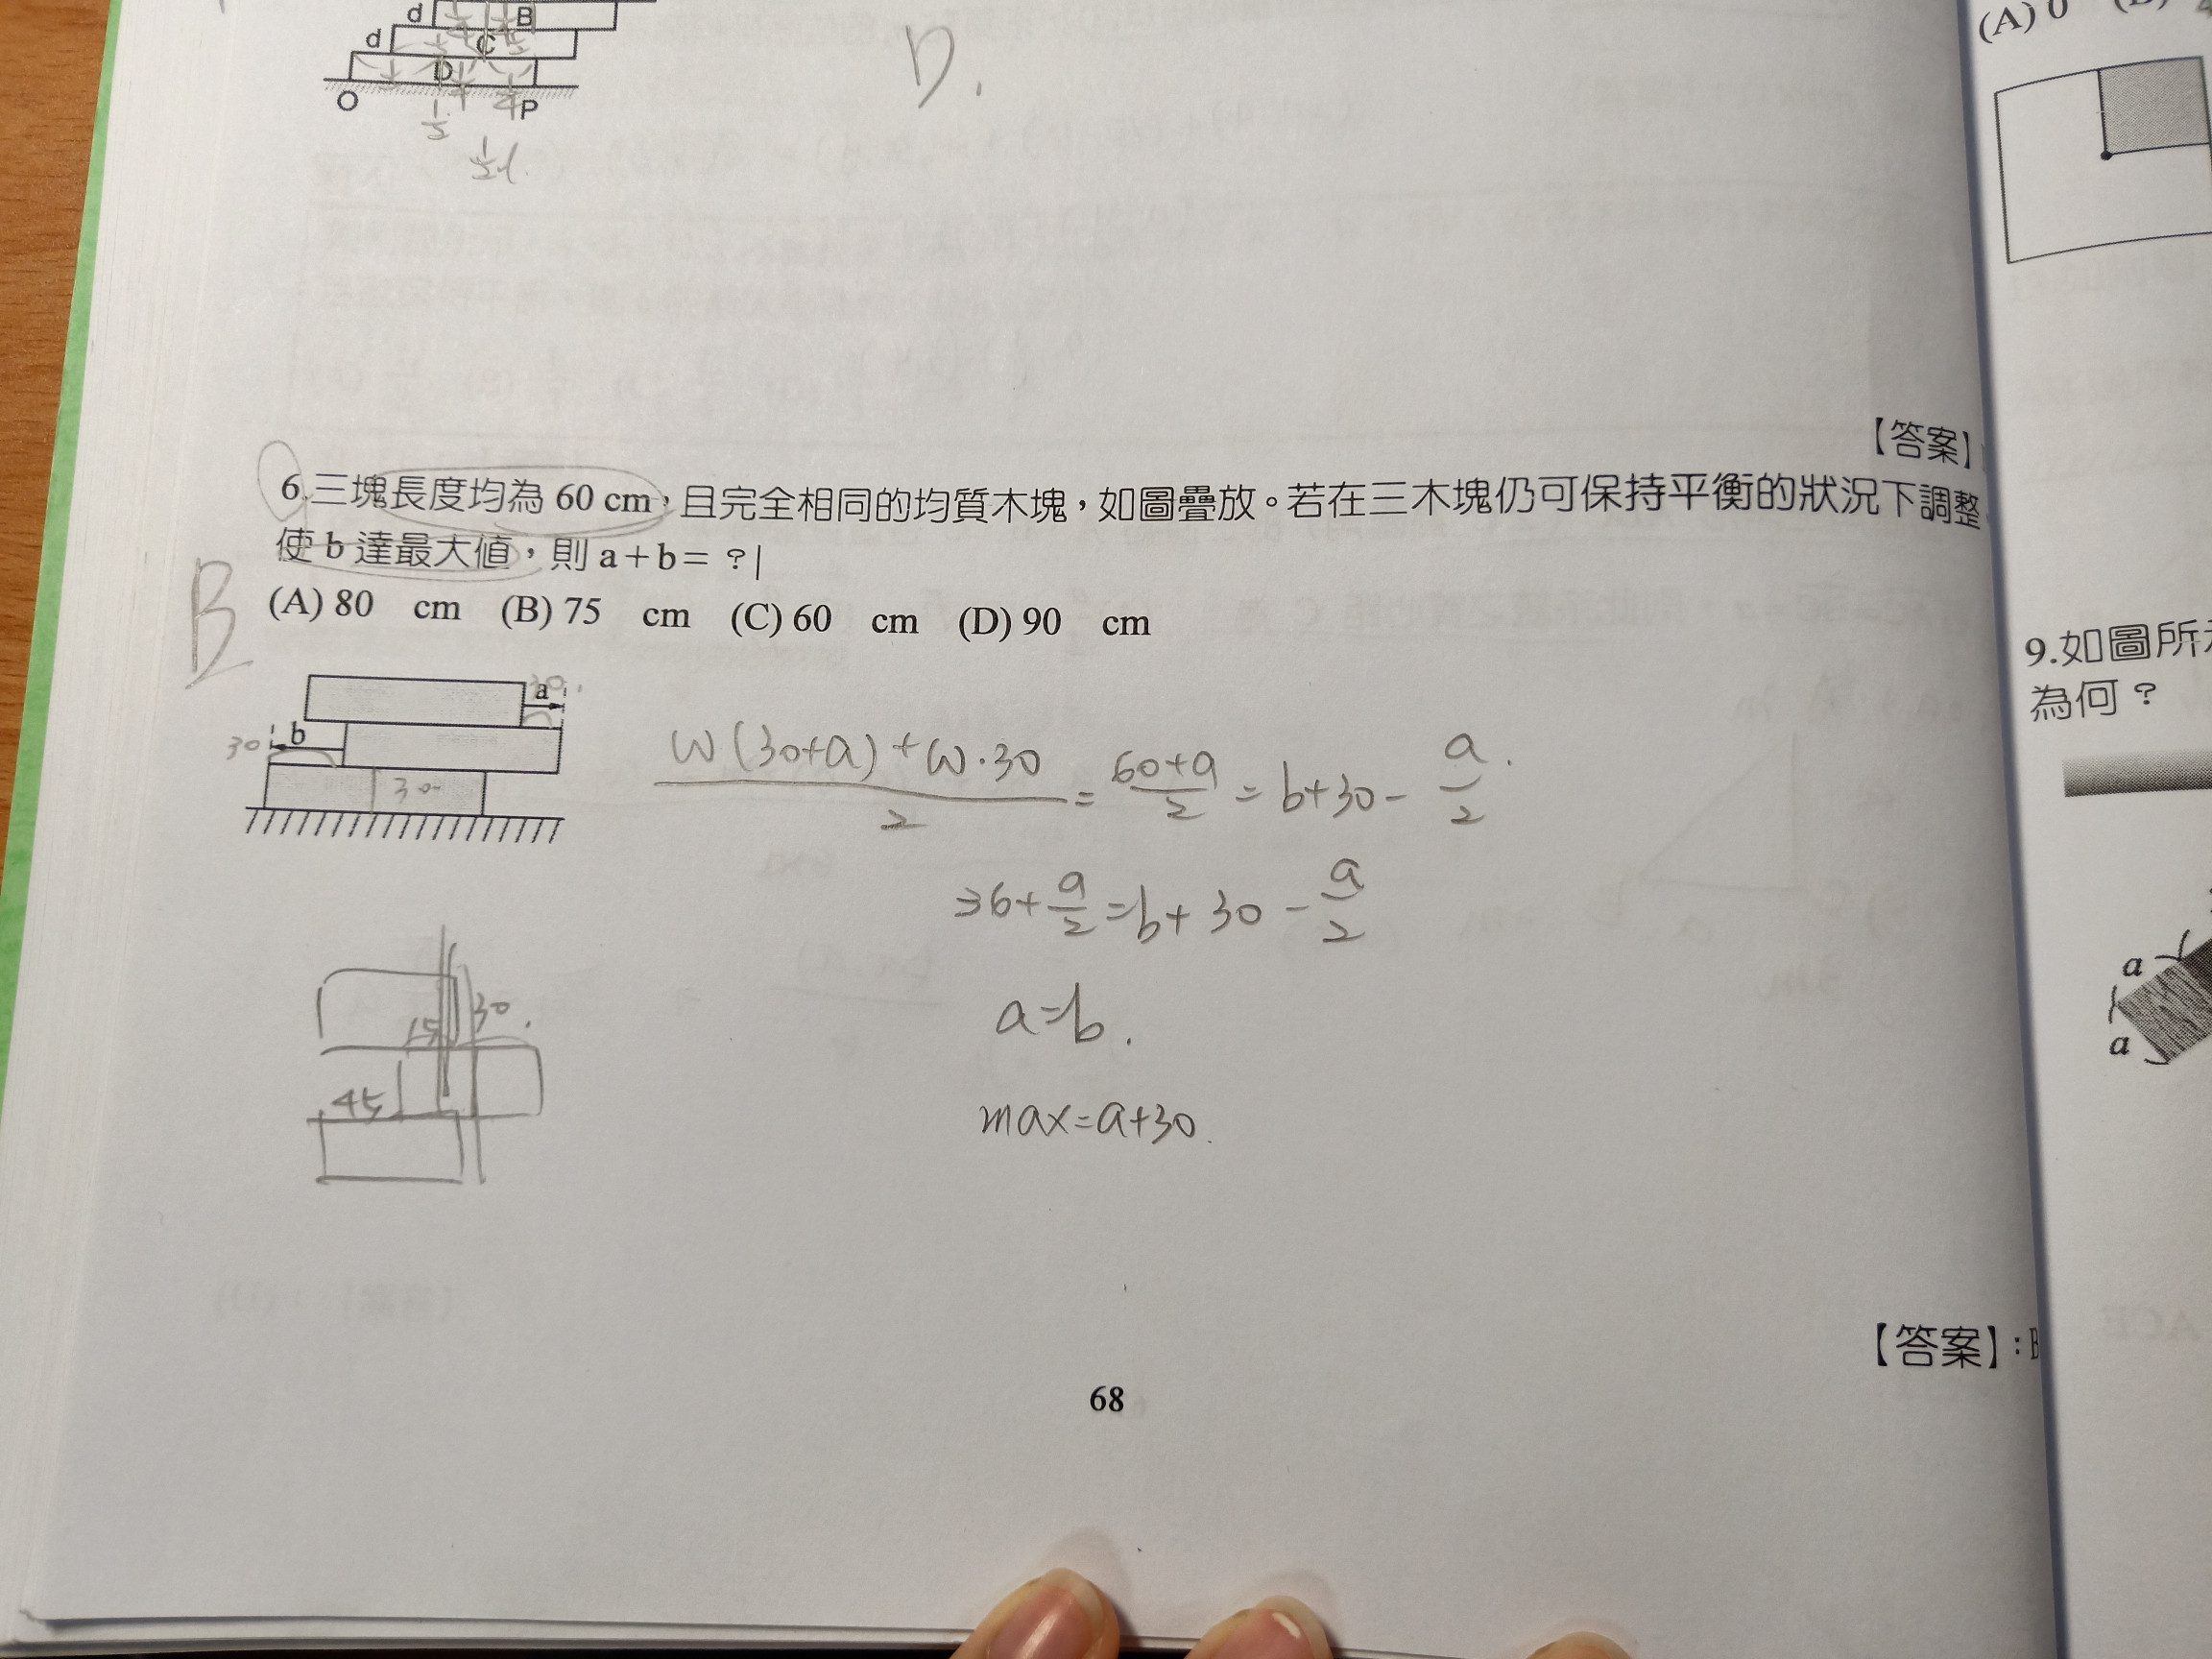 (A) 0
d
B
d
C
D
O
P
1/2
1/2 l.
D.
【答案】
6.三塊長度均為 60 cm，且完全相同的均質木塊，如圖疊放。若在三木塊仍可保持平衡的狀況下調整
使 b 達最大值，則 a＋b＝ ?|
B
(A) 80 cm (B) 75 cm (C) 60 cm (D) 90 cm
a
30.
30
b
30
W(30+a)+W·30/2 = 60+a/2 = b+30-a/2.
36+a/2=b+30-a/2
a=b.
max=a+30.
15
30.
45
【答案】:B
68
9.如圖所
為何?
a
a